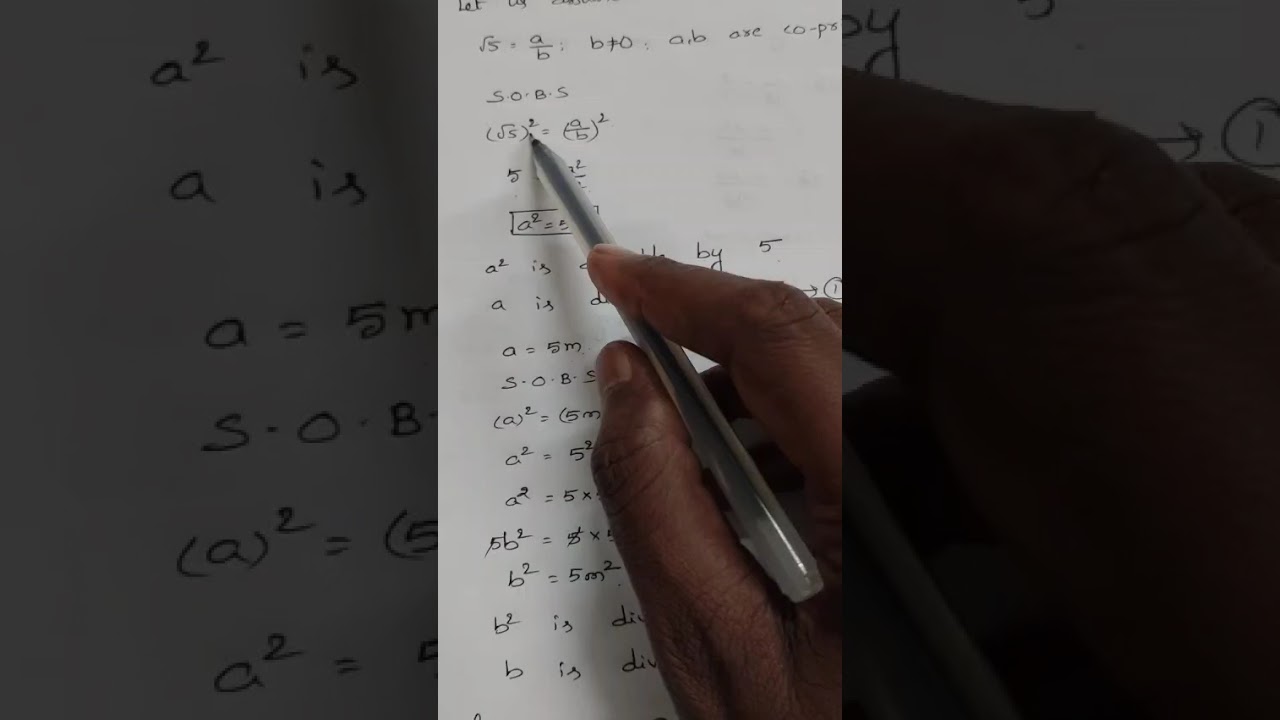 Let us
√5 = a/b ; b≠0 ; a,b are co-pr
S.O.B.S
(√5)² = (a/b)²
5
a² = 5
a² is by 5
a is → ①
a = 5m
S.O.B.S
(a)² = (5m
a² = 5²
a² = 5×
5b² = 5×5
b² = 5m²
b² is div
b is div